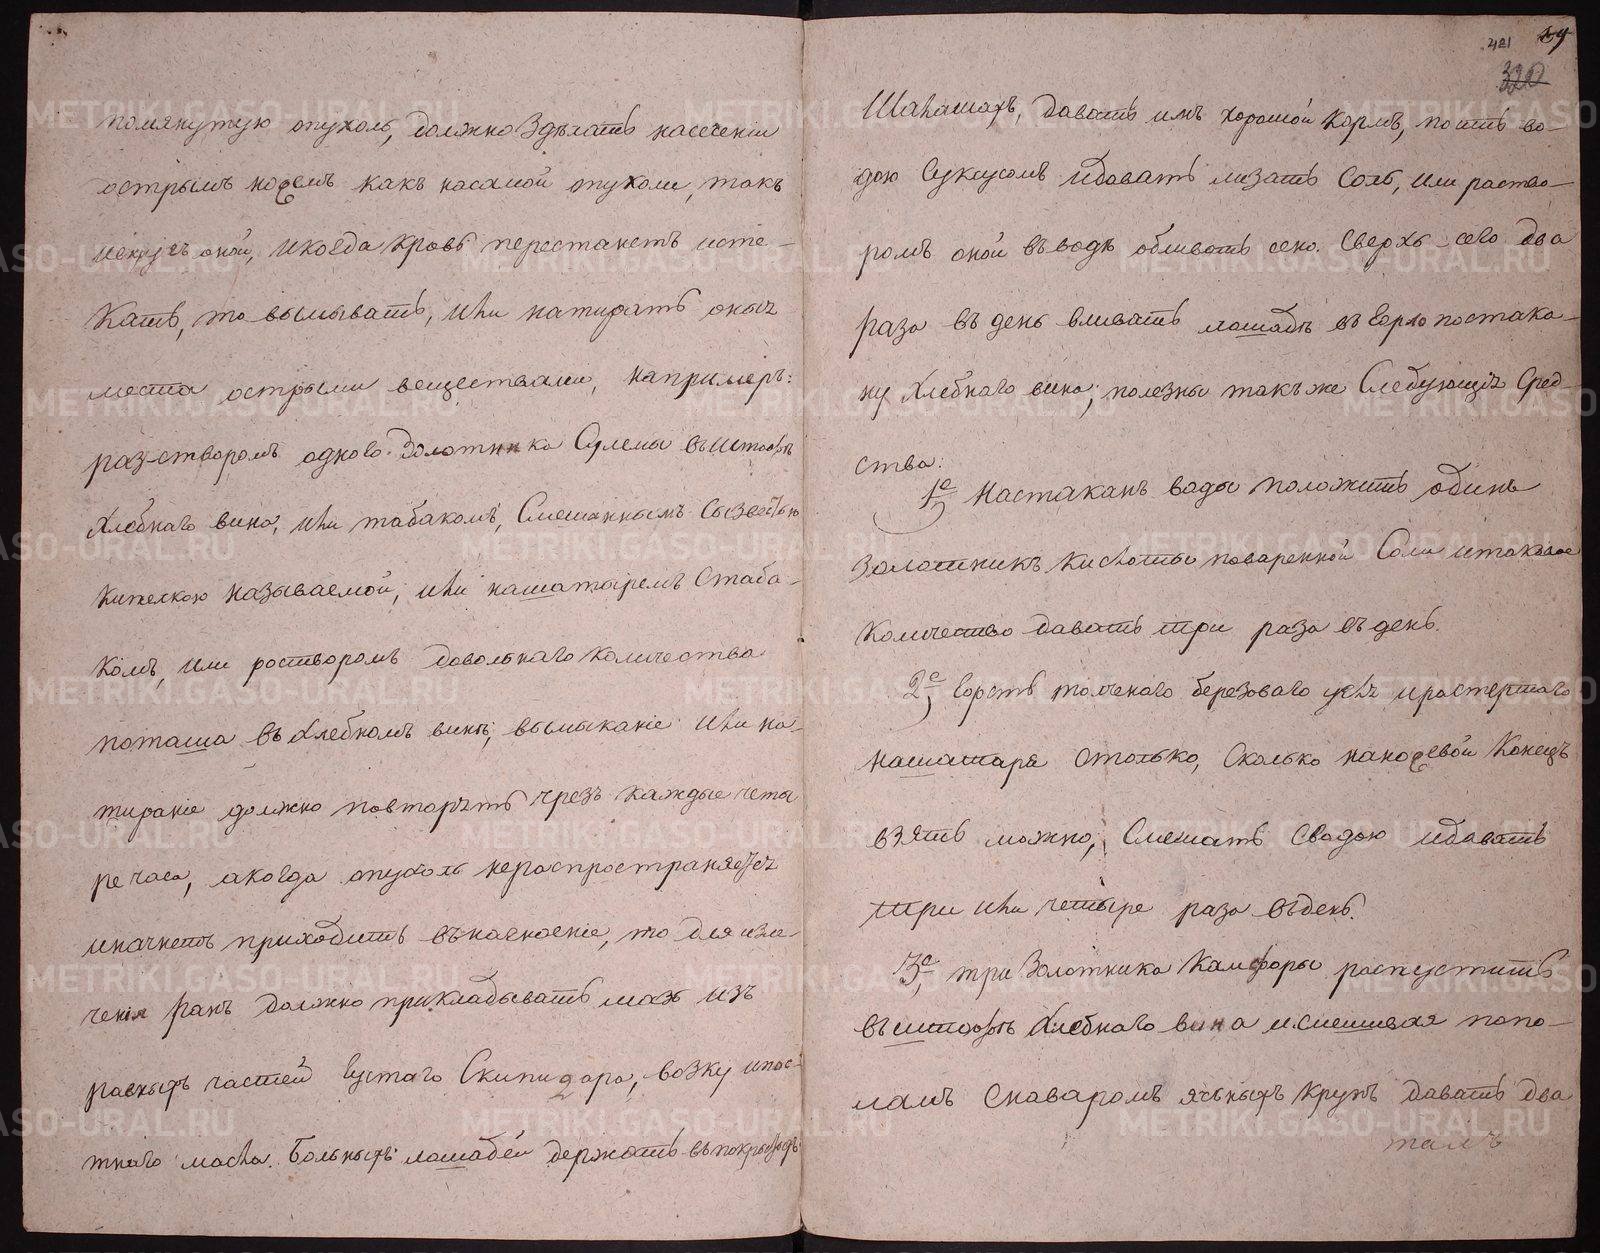 помянутую опухоль, должно здѣлать насечении
острымъ ножемъ какъ насамой опухоли, такъ
и вкругъ оной, и когда кровь перестанетъ исте-
кать, то вымывать, или натирать оныя
места острыми веществами, например:
раз-створомъ одного золотника Сулемы въ штофѣ
хлебнаго вина, или табакомъ, Смешаннымъ Сызвестью
кипелкою называемой, или нашатыремъ Стаба-
комъ, или ростворомъ довольнаго количества
поташа въ хлебномъ вине; вымыкание или на-
тирание должно повторять чрезъ каждые четы
ре часа, а когда опухоль нераспространяется
и начнетъ приходить въ нагноение, то для изле-
чения ранъ должно прикладывать мазь изъ
равныхъ частей густаго Скипидара, возку и пос-
тнаго масла. Больныхъ лошадей держать въ покрытыхъ
421 29
320
Шалашахъ, давать имъ хорошой кормъ, поить во-
дою Суксусомъ и давать лизать Соль, или раство-
ромъ оной въ водѣ обливать сено. Сверхъ-сего два
раза въ день вливать лошадѣ въ горло постака-
ну хлебнаго вина; полезны такъже Следующия Сред-
ства:
1е Настаканъ воды положить одинъ
золотникъ кислоты поваренной Соли и таковое
количество давать три раза въ день.
2е, горсть толченаго березоваго угля и растертаго
нашатыря столько, Сколько наножевой Конецъ
взять можно, Смешать Сводою и давать
три или четыре раза въ день.
3е, три Золотника Камфоры распустить
въ штофѣ хлебнаго вина и смешивая попо-
ламъ Снаваромъ ячныхъ крупъ давать два